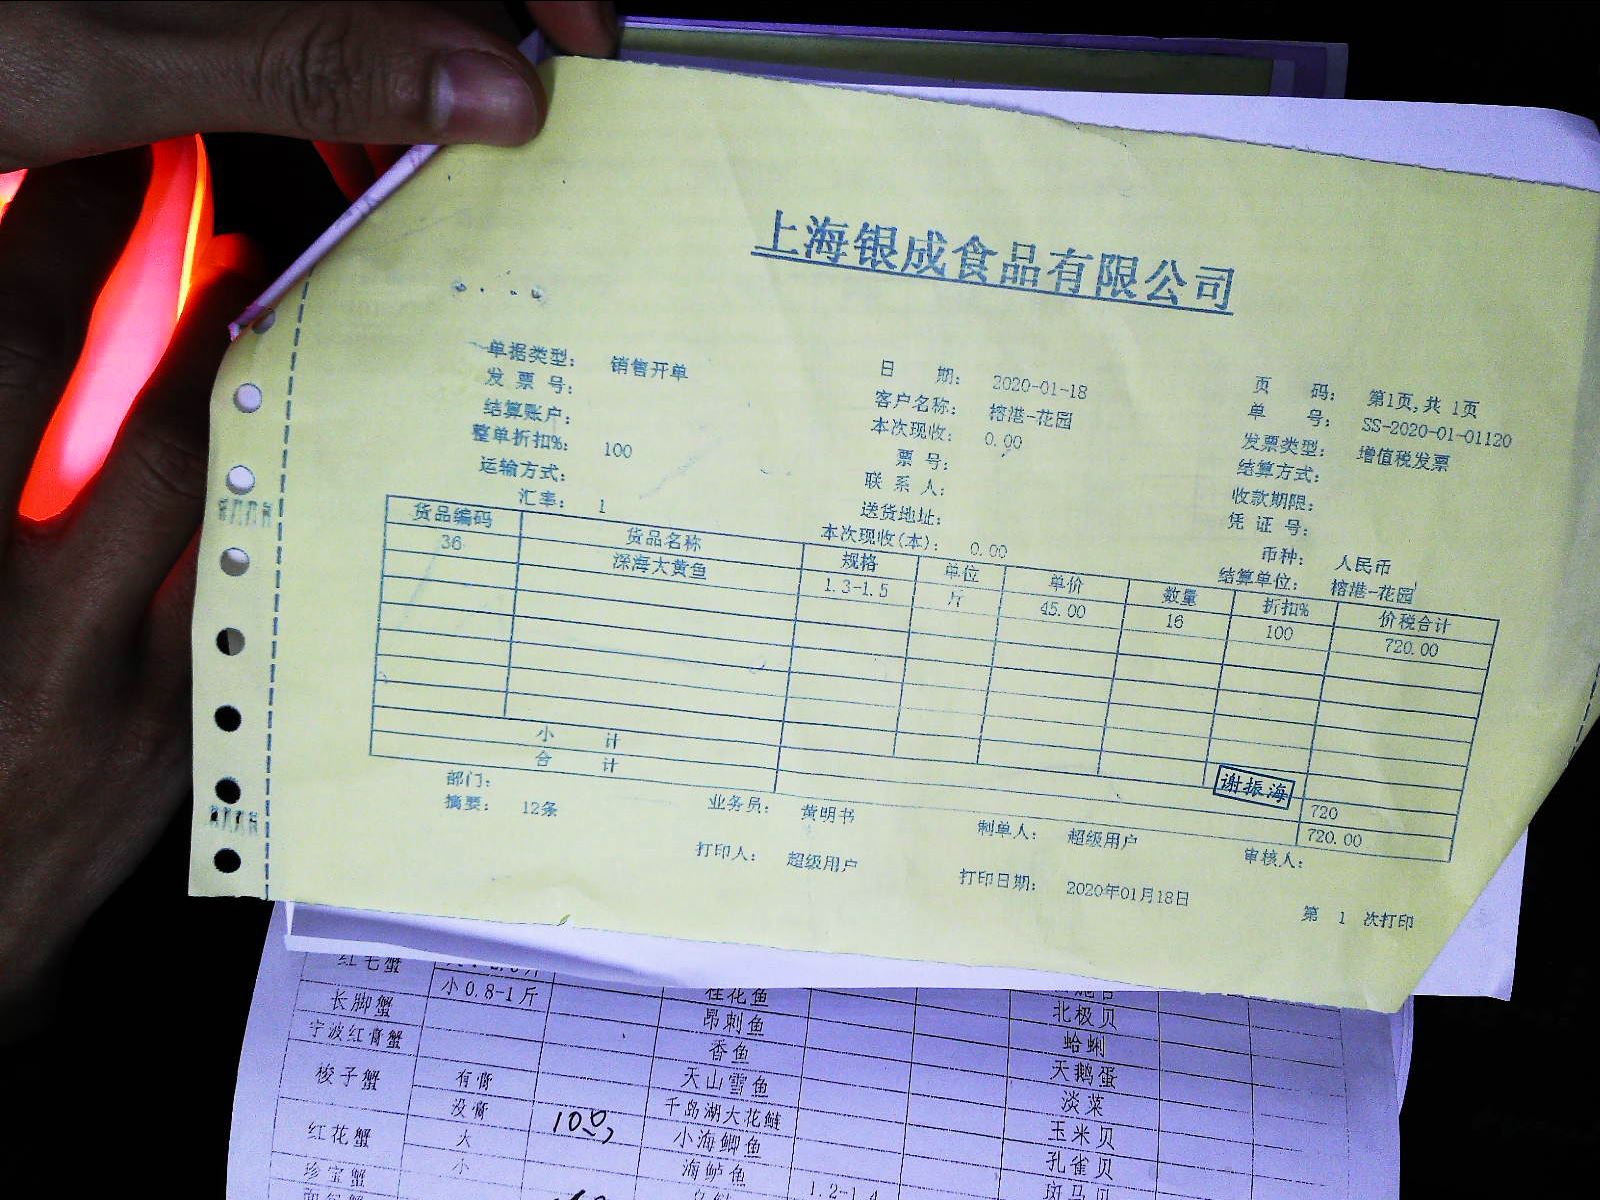 上海银成食品有限公司
单据类型： 销售开单 日 期： 2020-01-18 页 码： 第1页,共 1页
发 票 号： 客户名称： 榕港-花园 单 号： SS-2020-01-01120
结算账户： 本次现收： 0.00 发票类型： 增值税发票
整单折扣%： 100 票 号： 结算方式：
运输方式： 联 系 人： 收款期限：
汇率： 1 送货地址： 凭 证 号：
本次现收(本)： 0.00 币种： 人民币
结算单位： 榕港-花园
货品编码 货品名称 规格 单位 单价 数量 折扣% 价税合计
36 深海大黄鱼 1.3-1.5 斤 45.00 16 100 720.00
小 计 720
合 计 720.00
谢振海
部门： 业务员： 黄明书 制单人： 超级用户 审核人：
摘要： 12条
打印人： 超级用户 打印日期： 2020年01月18日 第 1 次打印
红毛蟹
小0.8-1斤 桂花鱼
长脚蟹 昂刺鱼 北极贝
宁波红膏蟹 香鱼 蛤蜊
梭子蟹 有膏 天山雪鱼 天鹅蛋
没膏 100 千岛湖大花鲢 淡菜
红花蟹 大 小海鲫鱼 玉米贝
小 海鲈鱼 孔雀贝
珍宝蟹 1.2-1.4 斑马贝